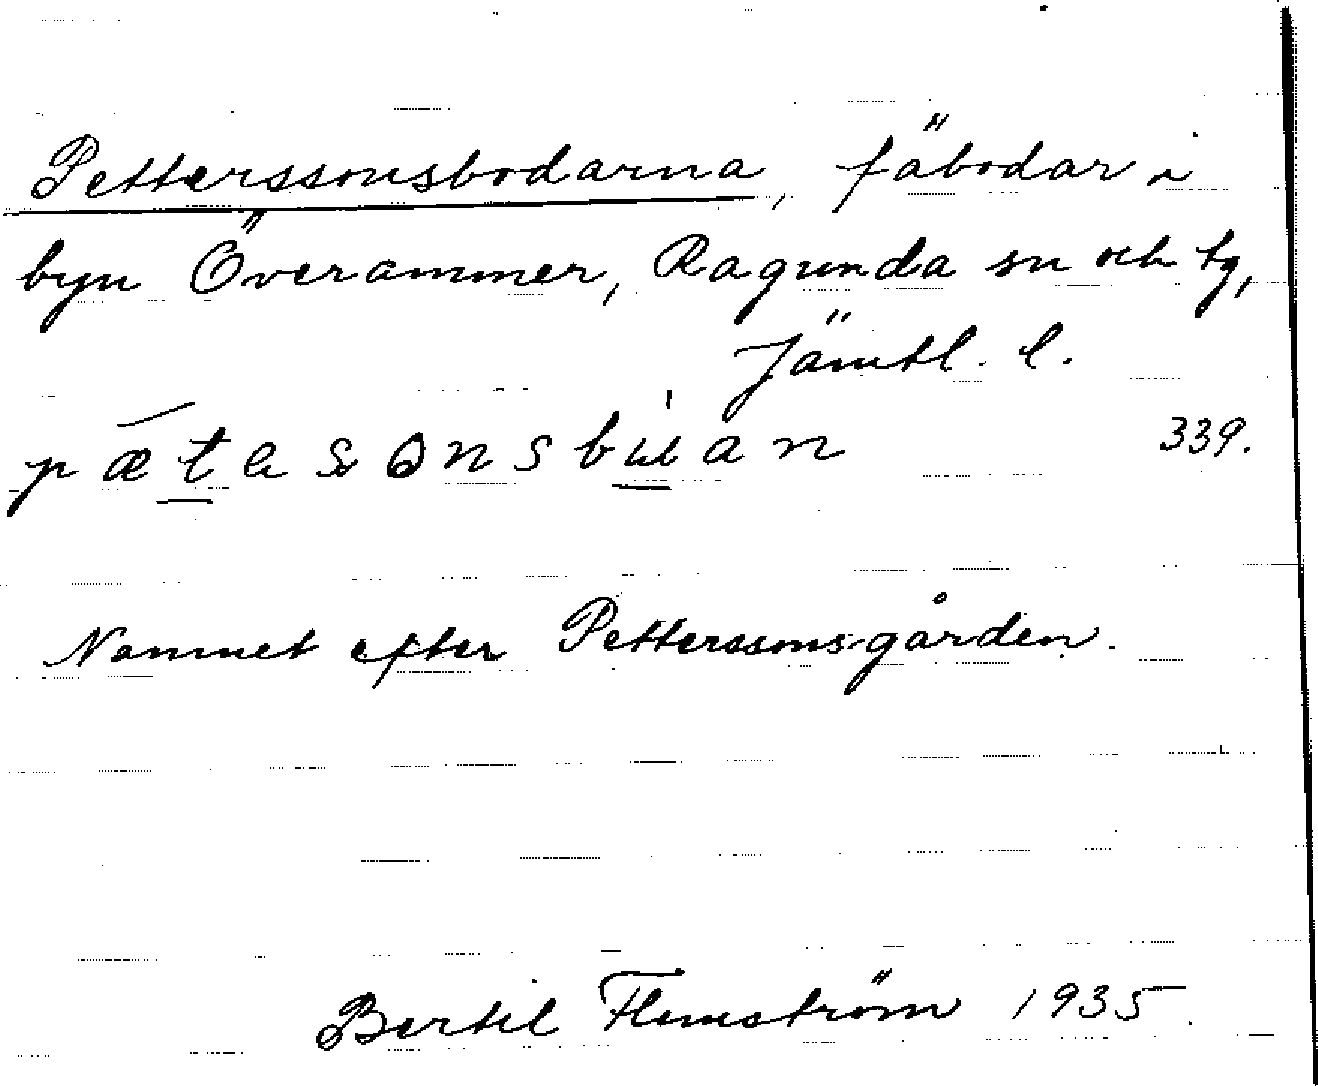 Petterssonsbodarna, fäbodar i
byn Överammer, Ragunda sn och tg,
Jämtl. l.
pætasonsbúan 339.
Namnet efter Petterssonsgården.
Bertil Flemström 1935.